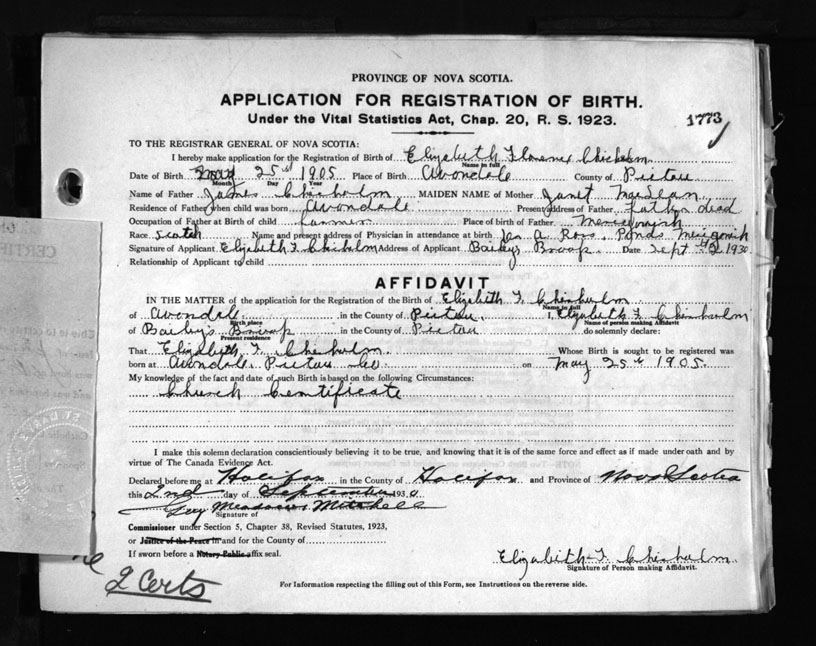 PROVINCE OF NOVA SCOTIA.
APPLICATION FOR REGISTRATION OF BIRTH.
Under the Vital Statistics Act, Chap. 20, R. S. 1923.
1773
TO THE REGISTRAR GENERAL OF NOVA SCOTIA:
I hereby make application for the Registration of Birth of Elizabeth Florence Chisholm
Name in full
Date of Birth May 25th 1905 Place of Birth Avondale County of Pictou
Month Day Year
Name of Father James Chisholm MAIDEN NAME of Mother Janet MacLean
Residence of Father when child was born Avondale Present address of Father father dead
Occupation of Father at Birth of child Farmer Place of birth of Father Merigomish
Race Scotch Name and present address of Physician in attendance at birth A. Ross, Ponds Merigomish
Signature of Applicant Elizabeth F. Chisholm Address of Applicant Bailey's Brook Date Sept 2 1930
Relationship of Applicant to child
AFFIDAVIT
IN THE MATTER of the application for the Registration of the Birth of Elizabeth F. Chisholm
Name in full
of Avondale in the County of Pictou. I, Elizabeth F. Chisholm
Birth place Name of person making Affidavit
of Bailey's Brook in the County of Pictou do solemnly declare:
Present residence
That Elizabeth F. Chisholm. Whose Birth is sought to be registered was
born at Avondale Pictou Co. on May 25th 1905.
My knowledge of the fact and date of such Birth is based on the following Circumstances:
Church Certificate
I make this solemn declaration conscientiously believing it to be true, and knowing that it is of the same force and effect as if made under oath and by
virtue of The Canada Evidence Act.
Declared before me at Halifax in the County of Halifax and Province of Nova Scotia
this 2nd day of September 1930
Guy Meadows Mitchell
Signature of
Commissioner under Section 5, Chapter 38, Revised Statutes, 1923,
or Justice of the Peace in and for the County of
If sworn before a Notary Public affix seal.
Elizabeth F. Chisholm.
Signature of Person making Affidavit.
2 Certs
For Information respecting the filling out of this Form, see Instructions on the reverse side.